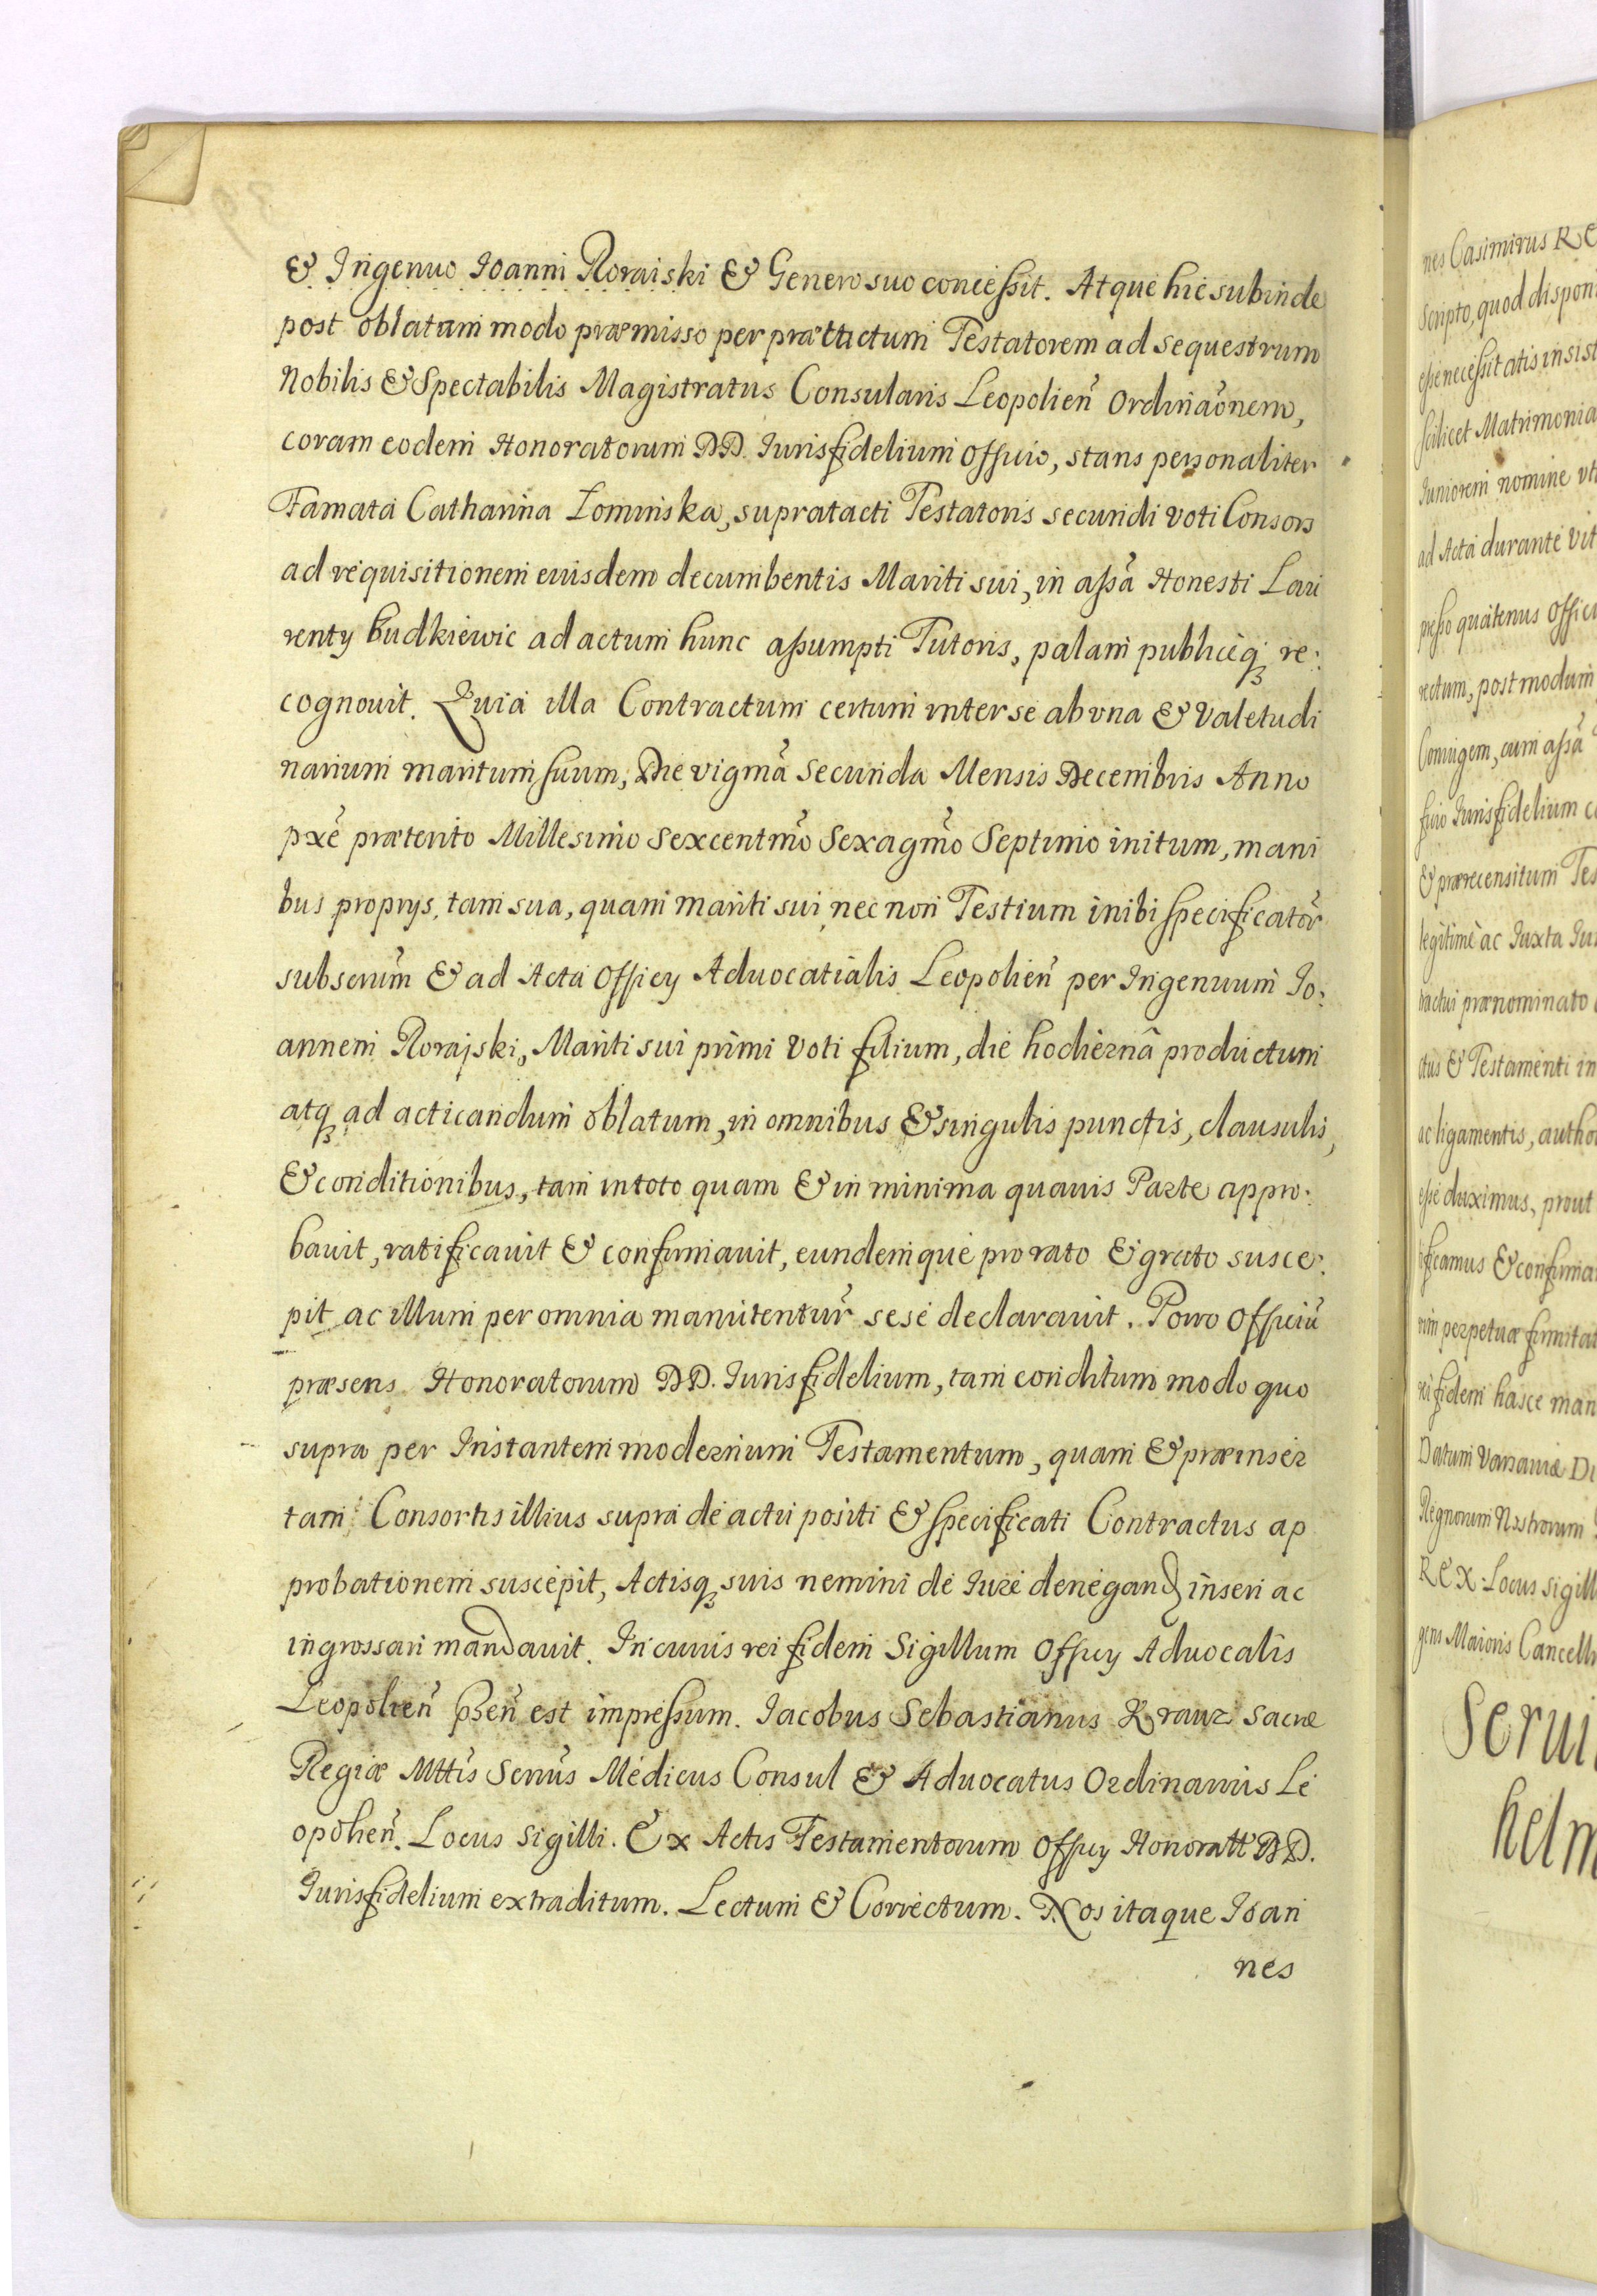 & Ingenuo Ioanni Roraiski & Genero suo concessit. Atque hic subinde
post oblatam modo præmisso per prætactum Testatorem ad sequestrum
Nobilis & Spectabilis Magistratus Consularis Leopolien̄ Ordinaōnem,
coram eodem Honoratorum DD. Iurisfidelium Officio, stans personaliter
Famata Catharina Łominska, supratacti Testatoris secundi voti Consors
ad requisitionem eiusdem decumbentis Mariti sui, in assā Honesti Lau
renty Budkiewic ad actum hunc assumpti Tutoris, palam publiceq; re:
cognovit. Quia illa Contractum certum inter se ab vna & Valetudi
narium maritum suum, Die vigmā Secunda Mensis Decembris Anno
pxē præterito Millesimo Sexcentmō Sexagmō Septimo initum, mani
bus proprys, tam sua, quam mariti sui, nec non Testium inibi specificatōr
subscrm̄ & ad Acta Officy Advocatialis Leopolien̄ per Ingenuum Jo:
annem Rorajski, Mariti sui primi Voti filium, die hodiernâ productum
atq; ad acticandum oblatum, in omnibus & singulis punctis, clausulis,
& conditionibus, tam in toto quam & in minima quavis Parte appro:
bavit, ratificavit & confirmavit, eundemque pro rato & grato susce:
pit ac illum per omnia manutentur̄ sese declaravit. Porro Officiū
præsens Honoratorum DD. Iurisfidelium, tam conditum modo quo
supra per Instantem modernum Testamentum, quam & præinser
tam Consortis illius supra de actu positi & specificati Contractus ap
probationem suscepit, Actisq; suis nemini de Iure denegand inseri ac
ingrossari mandavit. In cuius rei fidem Sigillum Officy Advocalis
Leopolien̄ pn̄sen̄ est impressum. Iacobus Sebastianus Kranz Sacræ
Regiæ Mttis Servus Medicus Consul & Advocatus Ordinarius Le
opolien̄. Locus Sigilli. Ex Actis Testamentorum Officy Honoratt DD.
Iurisfidelium extraditum. Lectum & Correctum. Nos itaque Ioan
nes
nes Casimirus Re
Scripto, quod dispon
esse necessitatis insist
scilicet Matrimonia
Iuniorem nomine vt
ad Acta durante Vit
presso quatenus Offici
rectum, postmodum
Coniugem, cum assā
ficio Iurisfidelium c
& prærecensitum Tes
legitimè ac Iuxta Iu
tractui prænominato
ctus & Testamenti in
ac ligamentis, autho
esse duximus, prout
ificamus & confirma
rim perpetuæ firmitat
rei fidem hasce man
Datum Varsaviæ Di
Regnorum Nostrorum
REX. Locus Sigill
gens Maioris Cancell
Servi
helm